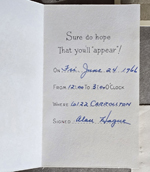 Sure do hope
That you'll "appear"!
On Fri. June 24 1966
From 12:00 To 3:00 O'Clock
Where 6122 Carrollton
Signed: Alan Hague